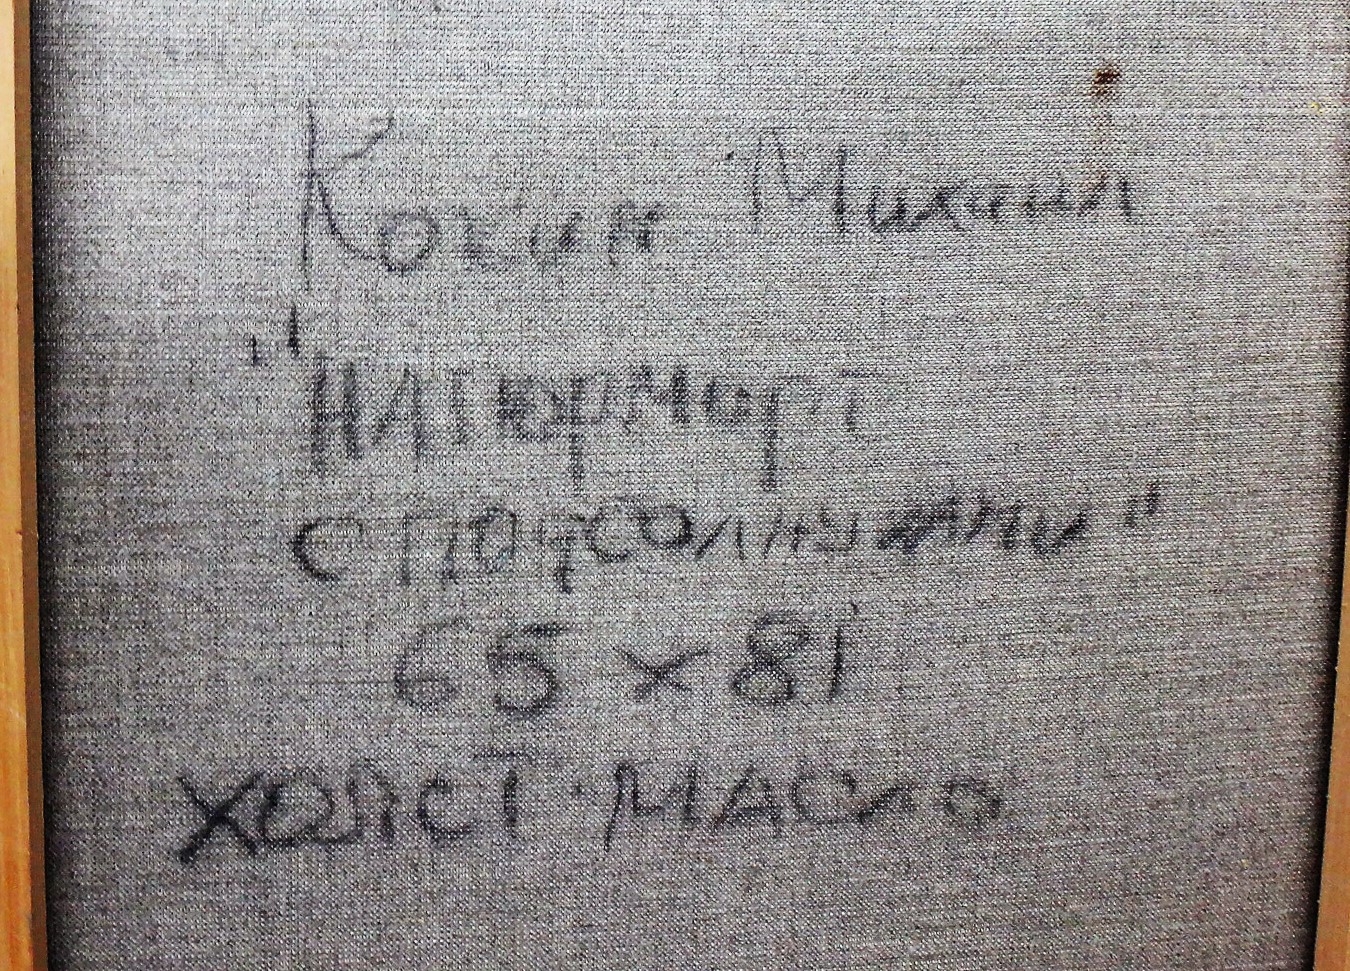 Кокин Михаил
"НАТЮРМОРТ
С ПОДСОЛНУХАМИ"
65 x 81
ХОЛСТ. МАСЛО